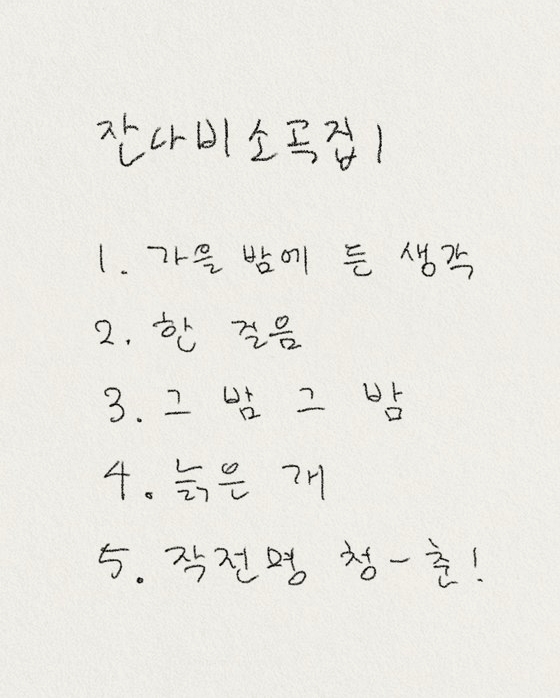 잔나비 소곡집 1
1. 가을 밤에 든 생각
2. 한 걸음
3. 그 밤 그 밤
4. 늙은 개
5. 작전명 청-춘!